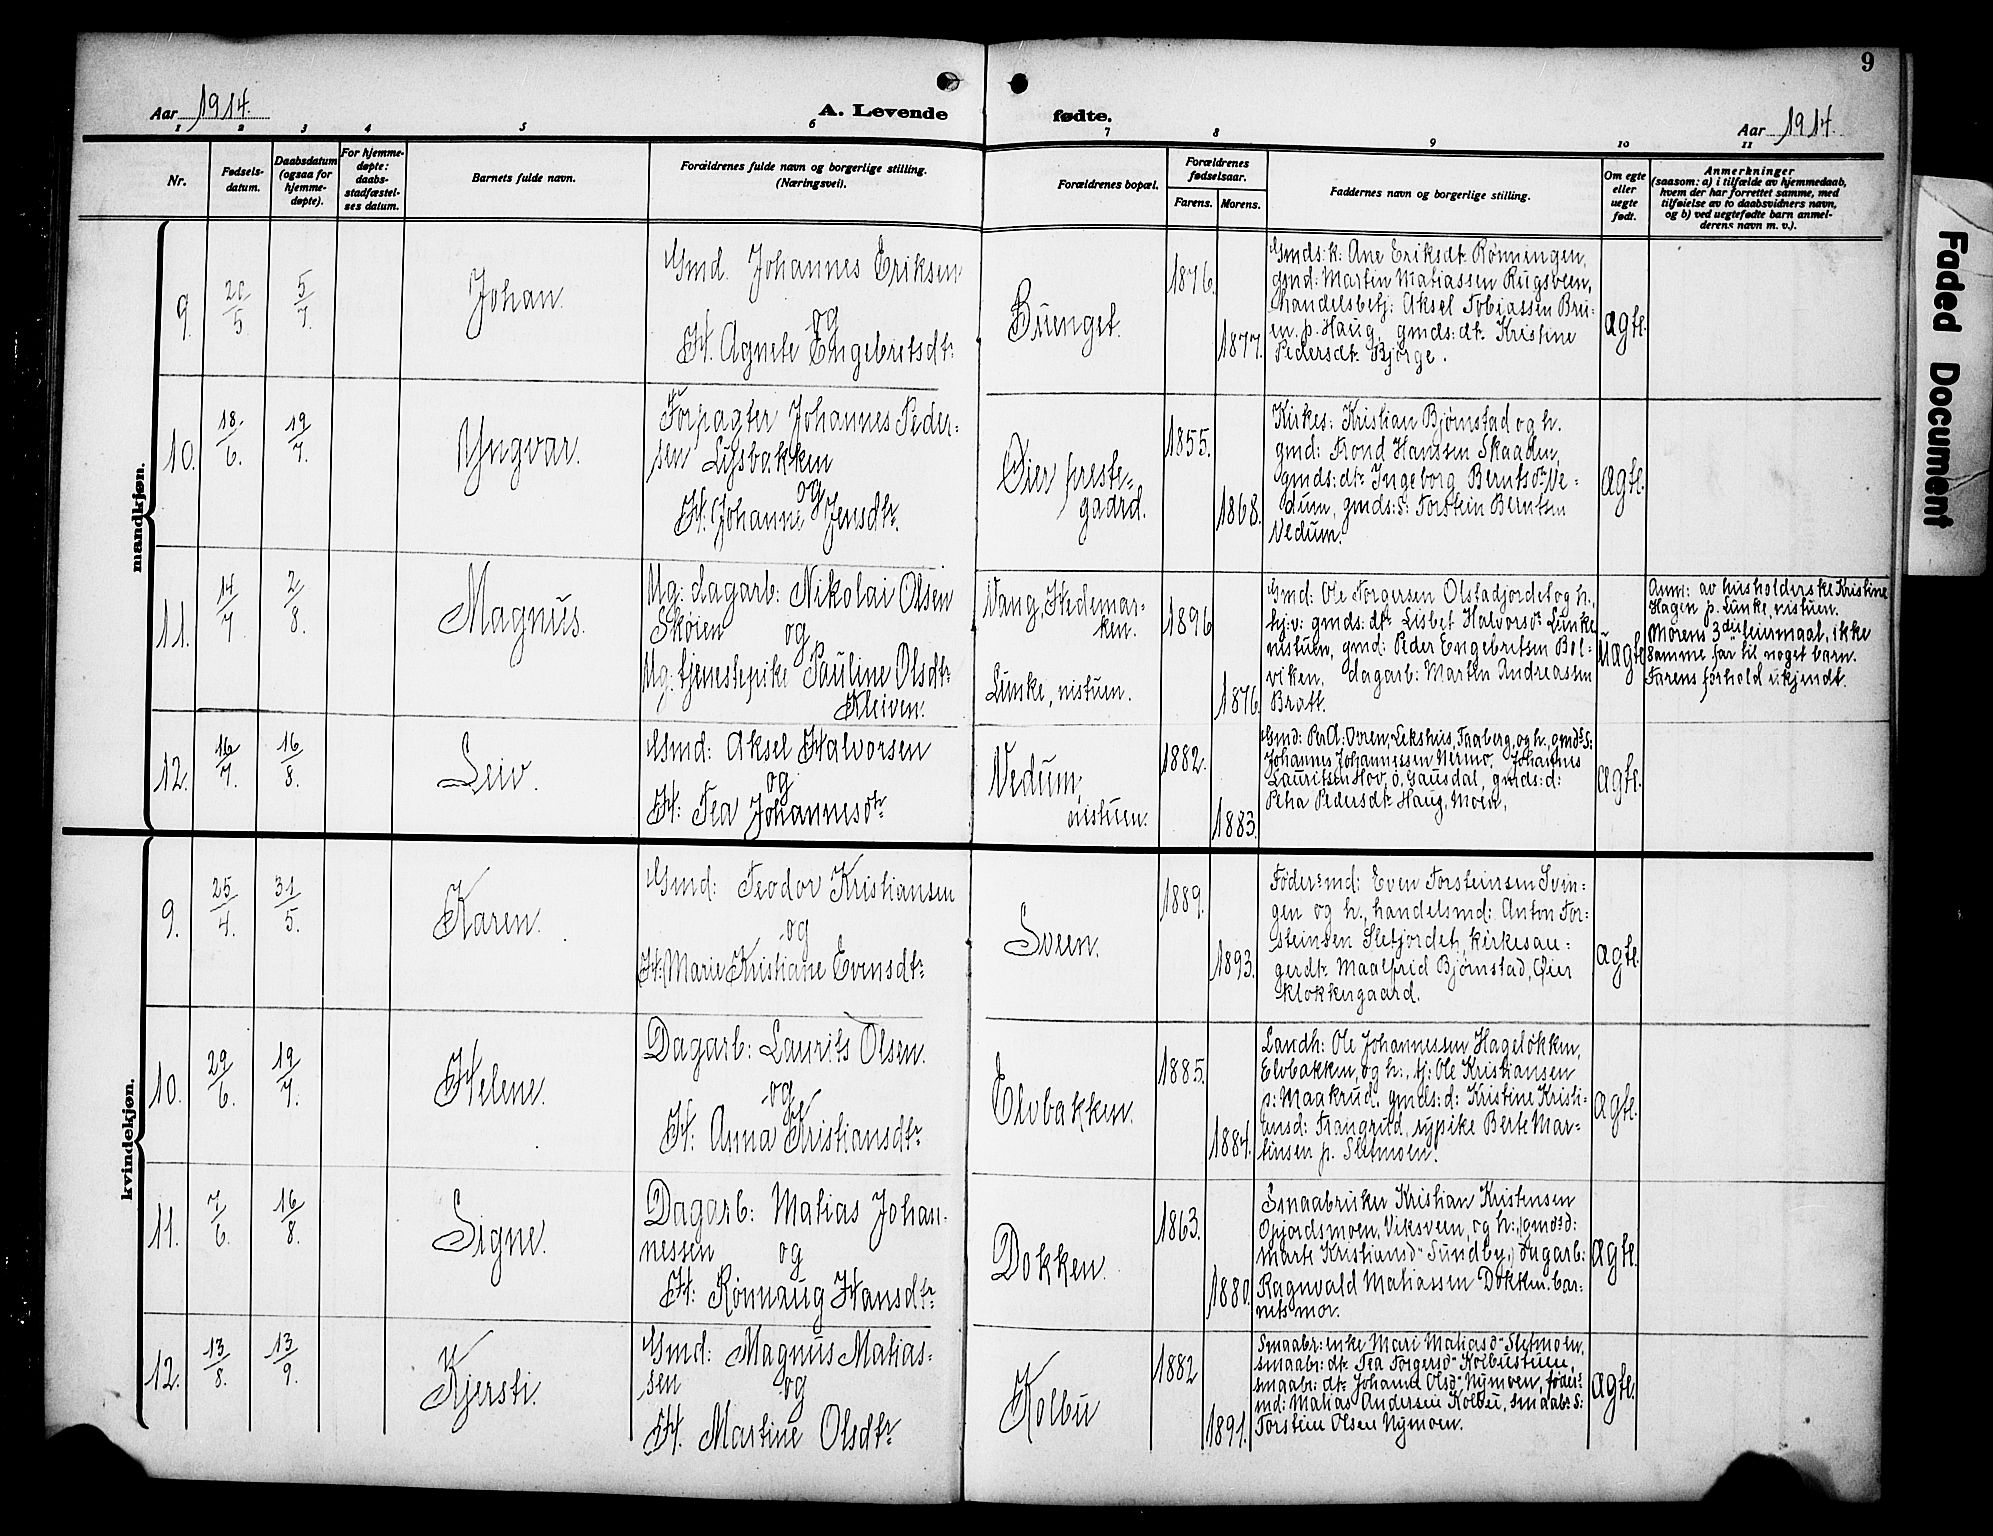 9
Aar 1914.
A. Levende
fødte.
Aar 1914.
1 2 3 4 5 6 7 8 9 10 11
Nr.
Fødsels-
datum.
Daabsdatum
(ogsaa for
hjemme-
døpte).
For hjemme-
døpte:
daabs-
stadfæstel-
ses datum.
Barnets fulde navn.
Forældrenes fulde navn og borgerlige stilling.
(Næringsvei).
Forældrenes bopæl.
Forældrenes
fødselsaar.
Farens. Morens.
Faddernes navn og borgerlige stilling.
Om egte
eller
uegte
født.
Anmerkninger
(saasom: a) i tilfælde av hjemmedaab,
hvem der har forrettet samme, med
tilføielse av to daabsvidners navn,
og b) ved uegtefødte barn anmel-
derens navn m. v.).
mandkjøn.
9. 20/5 5/7. Johan.
Gmd. Johannes Eriksen
og
H. Agnete Engebretsdtr
Buenget.
1876.
1877.
Gmds: k: Ane Eriksdt. Rønningen,
gmd: Martin Matiassen Rugsveen,
handelsbetj: Aksel Tobiassen Bru-
en p. Haug, gmds: dtr Kristine
Pedersdtr Bjørge.
ægte.
10. 18/6. 19/7. Yngvar.
Forpagter Johannes Peder-
sen Lysbakken
og
H. Johanne Jensdtr.
Øier preste-
gaard.
1855.
1868.
Kirkes: Kristian Bjørnstad og h.
gmd: Trond Hansen Skaaden,
gmds: dtr Ingeborg Berntsdtr Ve-
dum, gmds: s: Torstein Berntsen
Vedum.
ægte.
11. 14/7. 2/8. Magnus.
Ug: dagarb: Nikolai Olsen
Skøien og
Ug. tjenestepike Pauline Olsdtr
Kleiven.
Vang, Hedemar-
ken.
Lunke, nistuen.
1896
1876.
Gmd: Ole Torgersen Olstadjordet og h.,
hj: v: gmds: dtr Lisbet Halvorsdtr Lunke
nistuen, gmd: Peder Engebretsen Bol-
viken, dagarb: Martin Andreassen
Bratt.
uægte
Anm: av husholderske Kristine
Hagen p. Lunke, nistuen.
Morens 3die leiermaal, ikke
samme far til noget barn.
Farens forhold ukjendt.
12. 16/7. 16/8. Leiv.
Gmd: Aksel Halvorsen
og
H: Tea Johannesdtr
Vedum,
nistuen.
1882.
1883.
Gmd: Per A: Ovren, Lekshus, Faaberg, og h., gmds s:
Johannes Johannessen Nermo, Johannes
Lauritsen Hov, ø, Gausdal, gmds: d:
Petra Pedersdtr Haug, Moen,
ægte.
kvindekjøn.
9. 25/4. 31/5. Karen.
Gmd: Teodor Kristiansen
og
H: Marie Kristiane Evensdtr
Sveen.
1889.
1893.
Føder:md: Even Torsteinsen Svin-
gen og h., handelsmd: Anton Tor-
steinsen Sletjordet, kirkesan-
gerdtr Maalfrid Bjørnstad, Øier
klokkergaard.
ægte.
10. 29/6. 19/7. Helene.
Dagarb: Laurits Olsen.
og
H: Anna Kristiansdtr
Elvbakken.
1885.
1884.
Landh: Ole Johannessen Hageløkken,
Elvbakken, og h., tj: Ole Kristiansen
p: Maakrud, gmds: d: Kristine Kristi-
ensd: Trangrud, sypike Berte Mar-
tinsen p. Sletmoen.
ægte.
11. 7/6. 16/8. Signe.
Dagarb: Matias Johan-
nessen og
H: Rønnaug Hansdtr
Dokken.
1863.
1880.
Smaabruker Kristian Kristensen
Gjordsmoen, Viksveen, og h., gmds d:
Marte Kristiansd. Sundby, dagarb:
Ragnvald Matiassen Dokken. bar-
nets mor.
ægte.
12. 13/8. 13/9. Kjersti.
Gmd: Magnus Matias-
sen og
H. Martine Olsdtr
Kolbu
1882
1891.
Smaabr: enke Mari Matiasd. Sletmoen,
smaabr: dtr Tea Torgersd. Kolbustuen,
smaabr: dtr Johanne Olsd. Nymoen, føder:
md: Matias Andersen Kolbu, smaabr: s:
Torstein Olsen Nymoen.
ægte.
Faded Document